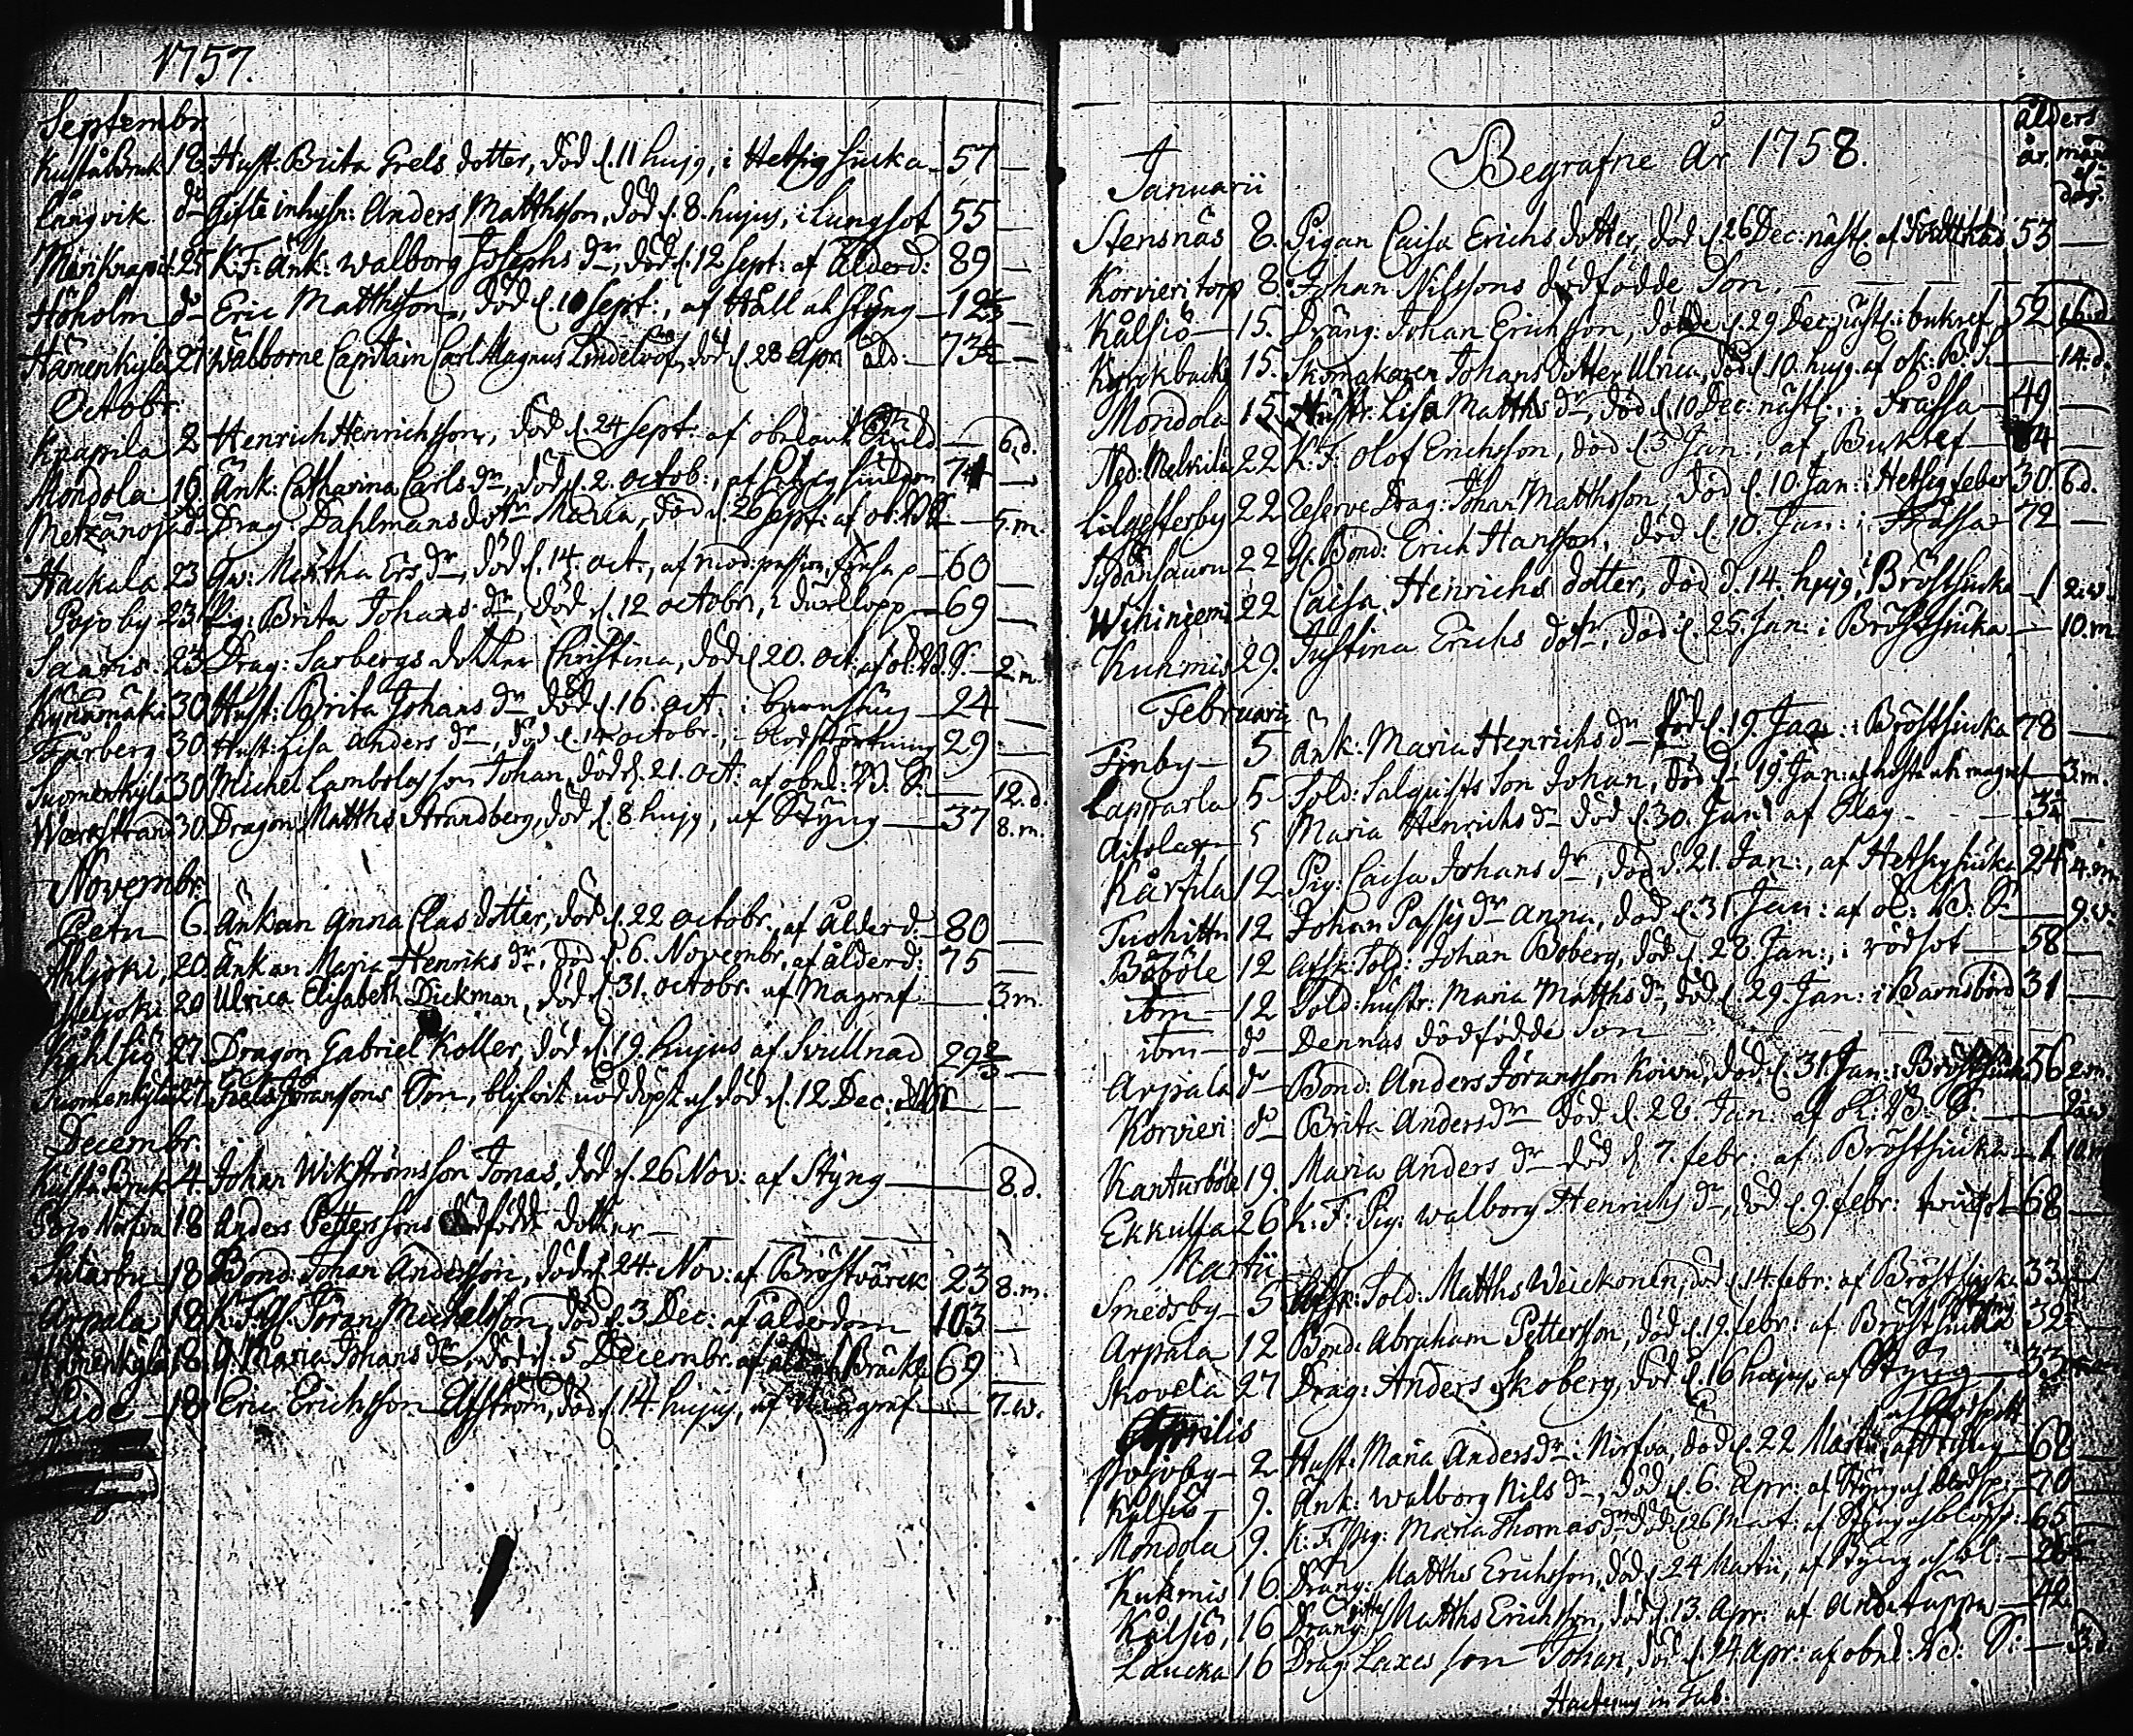 1757.
Septembr.
Kustå Bruk 18. Hust. Brita Grels dotter, död d. 11 hujg, i Hetsig siuka 57 —
Långvik do Gifte inhysn: Anders Matthsson, död d. 8. hujus, i Lungsot 55 —
Meriknapit 25 K.F. Änk: Walborg Josephs dr, död d. 12 Sept: af Ålderd: 89 —
Höholm do Eric Matthsson, död d. 10 Sept:, af Håll ah Styng — 12 —
Hämenkylä 27 Wälborne Capitain Carl Magnus Lindelöf, död d. 28 Apr. åld. — 73½ —
Octobr.
Knapila 2 Henrich Henrichsson, död d. 24 Sept. af obekant — 6.d.
Mondola 16. Änk: Catharina Carls dr, död d. 2. octob:, af 74 —
do Drag: Dahlmans dotr Maria, död d. 26 Sept: af ob: B.S. — 5.m.
Hackala 23 Gw: Märtha Ers dr, död d. 14. oct., af 60 —
Pojo by 23. Pig: Brita Johans dr, död d. 12 octobr, i durklopp — 69 —
Saaris. 23 Drag: Sarbergs dotter Christina, död d. 20. oct. af ob: B. S. — 2.m.
30. Hust: Brita Johans dr död d. 16. oct. i barnsäng — 24 —
Färberg 30. Hust: Lisa Anders dr, död d. 14 octobr, i blodstörtning 29 —
Suomenkylä 30. Michel Lambolas son Johan, död d. 21. Oct. af obnd: B. S. — 12.d.
Warfstrand 30. Dragon Matths Strandberg, död d. 8 hujg, af Styng — 37 8.m.
Novembr.
Petu 6. Änkan Anna Clas dotter, död d. 22 octobr. af Ålderd. — 80 —
Ahljoki, 20. Änkan Maria Henriks dr. död d. 6. Novembr. af ålderd: 75 —
20 Ulrica Elisabeth Dickman, död d. 31. octobr. af Magref — 3m.
Kåhlsiö 27. Dragon Gabriel Koller, död d. 19. hujus af Svullnad 29⅔ —
Suomenkylä 27. Grels Göranssons Son, blifvit nöddöpt ah död d. 12 Dec: —
Decembr.
Kustå Bruk 4. Johan Wikströmsson Jonas, död d. 26 Nov: af Styng — 8.d.
Pojo Nirfva 18 Anders Petterssons dödfödde dotter — — —
Sutarbu 18 Bond: Johan Andersson, död d. 24. Nov: af Bröstvärck 23 8.m.
Arpala 18 K.F. Gl. Jöran Michelsson, död d. 3 Dec: af Ålderdom 103 —
Hämenkylä 18. G. Maria Johans dr, död d. 5 Decembr. af Bråck 69 —
Lide — 18 Eric Erichsson Elfström, död d. 14. hujus, af Magref — 7.w.
Begrafne År 1758.
ålders
år, mån
el.
dag.
Januarii
Stensnäs 8. Pigan Caisa Erichs dotter, död d. 26 Dec: nästl. af 53 —
Korvieritorp 8. Johan Nilssons dödfödde Son. — — —
Kålsiö — 15. Dräng: Johan Erichsson, död d. 29 Dec: nästl: i bukref 52 16.d.
Kyrckbacke 15. Skomakaren Johans dotter Ulrica, död d. 10. hujg. af ob: B.S. — 14.d.
Mondola 15. Hustr: Lisa Matths dr, död d. 10 Dec: nästl:, i Frässa — 49 —
Ned: Melkilä 22 K. F. Olof Erichsson, död d. 3 Jan:, af Bukref — 84 —
Lillgesterby 22 Reserve Drag: Johan Matthsson, död d. 10. Jan: i Hetsig feber 30. 6d.
Sydänsauru 22 Gl. Bond: Erich Hansson, död d. 10. Jan: i Frässa 72 —
Wihiniemi 22 Caisa Henrichs dotter, död d. 14. hujg, i Bröstsiuka 1 2.w.
Kuhmis 29. Justina Erichs dotr, död d. 25. Jan: i Bröstsiuka — 10.m.
Februarii
Finby — 5. Änk. Maria Henrichs dr död d. 19. Jan: i Bröstsiuka 78 —
Lapparla 5 Sold: Salquists Son Johan, död d. 19 Jan: af hosta ah magref — 3.m.
5 Maria Henrichs dr död d. 30. Jan: af Slag — 3¾ —
Kårtila 12. Pig: Caisa Johans dr, död d. 21. Jan:, af Hetsig siuka 24 4.m.
Tuohittu 12. Johan Passij dr Anna, död d. 31 Jan: af ob: B: S. — 9.w.
Båböle 12 Afsk: Sold: Johan Boberg, död d. 28. Jan:, i rödsot — 58 —
ibm — 12 Sold: hustr: Maria Matths dr, död d. 29. Jan: i Barnsbörd 31 —
ibm — do Dennas dödfödde Son — —
Arpala do Bond: Anders Jöransson Koivu, död d. 31 Jan: i Bröstsiuka 56 2.m.
Korvieri do Brita Anders dr död d. 28. Jan: af ob: B: S: —
Kanturböle 19. Maria Anders dr död d. 7. febr. af Bröstsiuka — 1 10.m
Ekkulla 26 K. F. Pig: Walborg Henrichs dr, död d. 9. febr: 68 —
Martii
Smedsby — 5 Afsk: Sold: Matths Weickonen, död d. 14. febr: af Bröstsiuka 33. —
Arpala 12 Bond: Abraham Pettersson, död d. 19. febr: af Bröstsiuka 32 —
Skovela 27 Drag: Anders Skoberg, död d. 16 hujus, af Styng — 33
Aprilis
Pojoby — 2. Hust. Maria Anders dr i Nirfva, död d. 22 Martii, af Styng 68 —
Kålsiö — 9. Änk: Walborg Nils dr, död d. 6. Apr: af Styng ah blodsp: — 70 —
Mondola 9. K. F. Pig: Maria Thomas dr död d. 26 Mart: af Styng ah blodsp: 65 —
Kuhmis 16 Dräng: Matths Erichsson, död d. 24 Martii, af Styng ah bl: —
Kålsiö, 16 Dräng: Matths Erichsson, död d. 13. Apr. af Andetäppa — 42.
Laucka 16 Drag: Laxes son Johan, död d. 14. Apr: af obnd: B: S: — 3.d.
Hactenus in Tab.